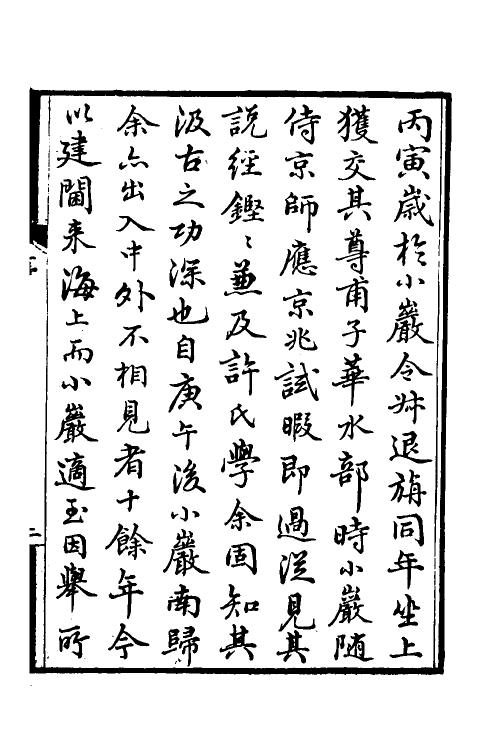 丙寅歲於小巖令叔退旃同年坐上
獲交其尊甫子華水部時小巖隨
侍京師應京兆試暇即過從見其
說經鏗〻兼及許氏學余固知其
汲古之功深也自庚午後小巖南歸
余亦出入中外不相見者十餘年今
以建閫來海上而小巖適至因舉所
序
二